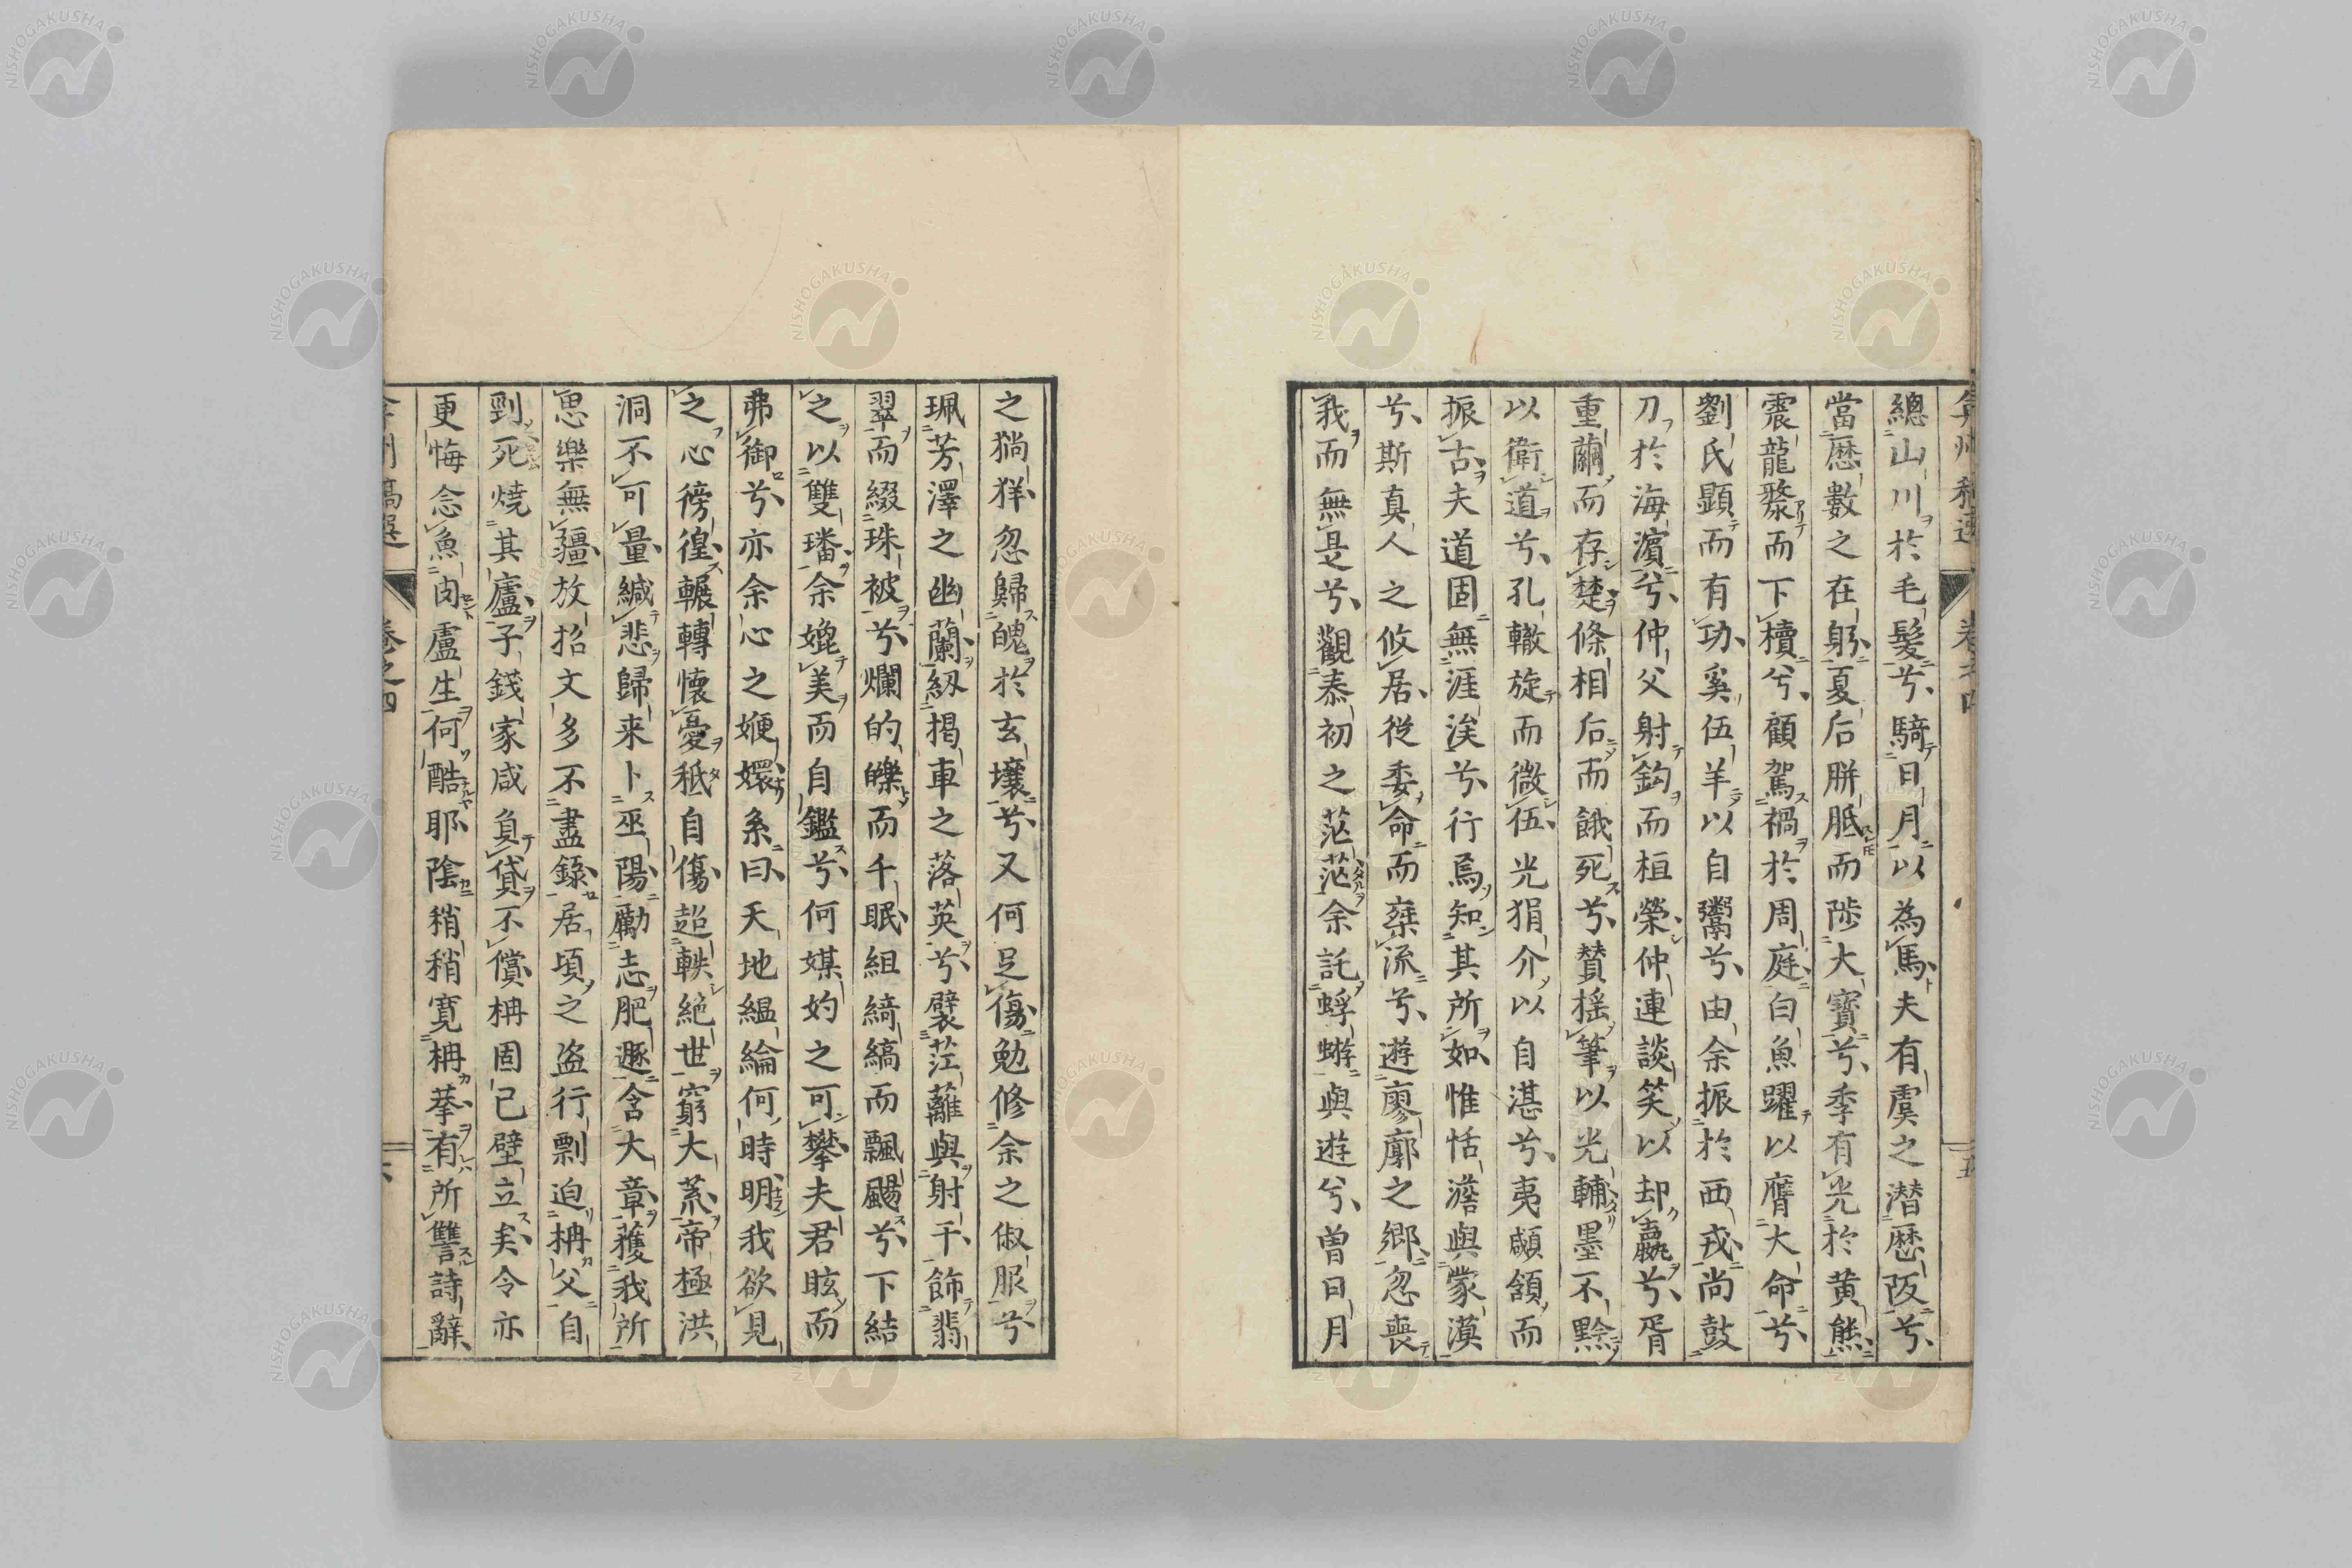 總山川於毛髮兮騎日月以為馬夫有虞之潜歷阪兮
當歷數之在躬夏后胼胝而陟大寶兮季有光於黄熊
震龍漦而下櫝兮顧駕禍於周庭白魚躍以膺大命兮
劉氏顯而有功奚伍羊以自鬻兮由余振於西戎尚鼓
刀於海濵兮仲父射鈎而桓榮仲連談笑以却嬴兮胥
重繭而存楚條相后而餓死兮賛揺筆以光輔墨不黔
以衛道兮孔轍旋而微伍光狷介以自湛兮夷顑頷而
振古夫道固無涯涘兮行焉知其所如惟恬澹與蒙漠
兮斯真人之攸居從委命而桒流兮遊廖廓之郷忽喪
我而無是兮觀泰初之茫茫余託蜉蝣與遊兮曽日月
之猗徉忽歸魄於玄壤兮又何足傷勉修余之俶服兮
珮芳澤之幽蘭紉揭車之落英兮襞茳蘺與射干飾翡
翠而綴珠被兮爛的皪而千眠組綺縞而飄颺兮下結
之以雙璠余媲美而自鑑兮何媒妁之可攀夫君眩而
弗御兮亦余心之婏嬛系曰天地緼綸何時明我欲見
之心徬徨輾轉懷憂秖自傷超軼絶世窮大荒帝極洪
洞不可量緘悲歸来卜巫陽勵志肥遯含大章獲我所
思樂無疆放招文多不盡錄居頃之盗行剽迫枏父自
剄死燒其廬子錢家咸負貸不償枏固已壁立矣令亦
更悔念魚肉盧生何酷耶陰稍稍寛枏拲有所讐詩辭
卷之四